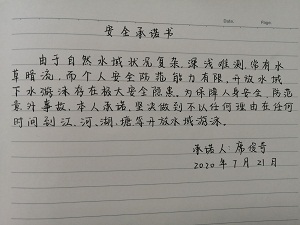 Date: Page:
安全承诺书
由于自然水域状况复杂,深浅难测,常有水
草暗流,而个人安全防范能力有限,开放水域
下水游泳存在极大安全隐患。为保障人身安全,防范
意外事故,本人承诺,坚决做到不以任何理由在任何
时间到江、河、湖、塘等开放水域游泳。
承诺人:席俊奇
2020年7月21日